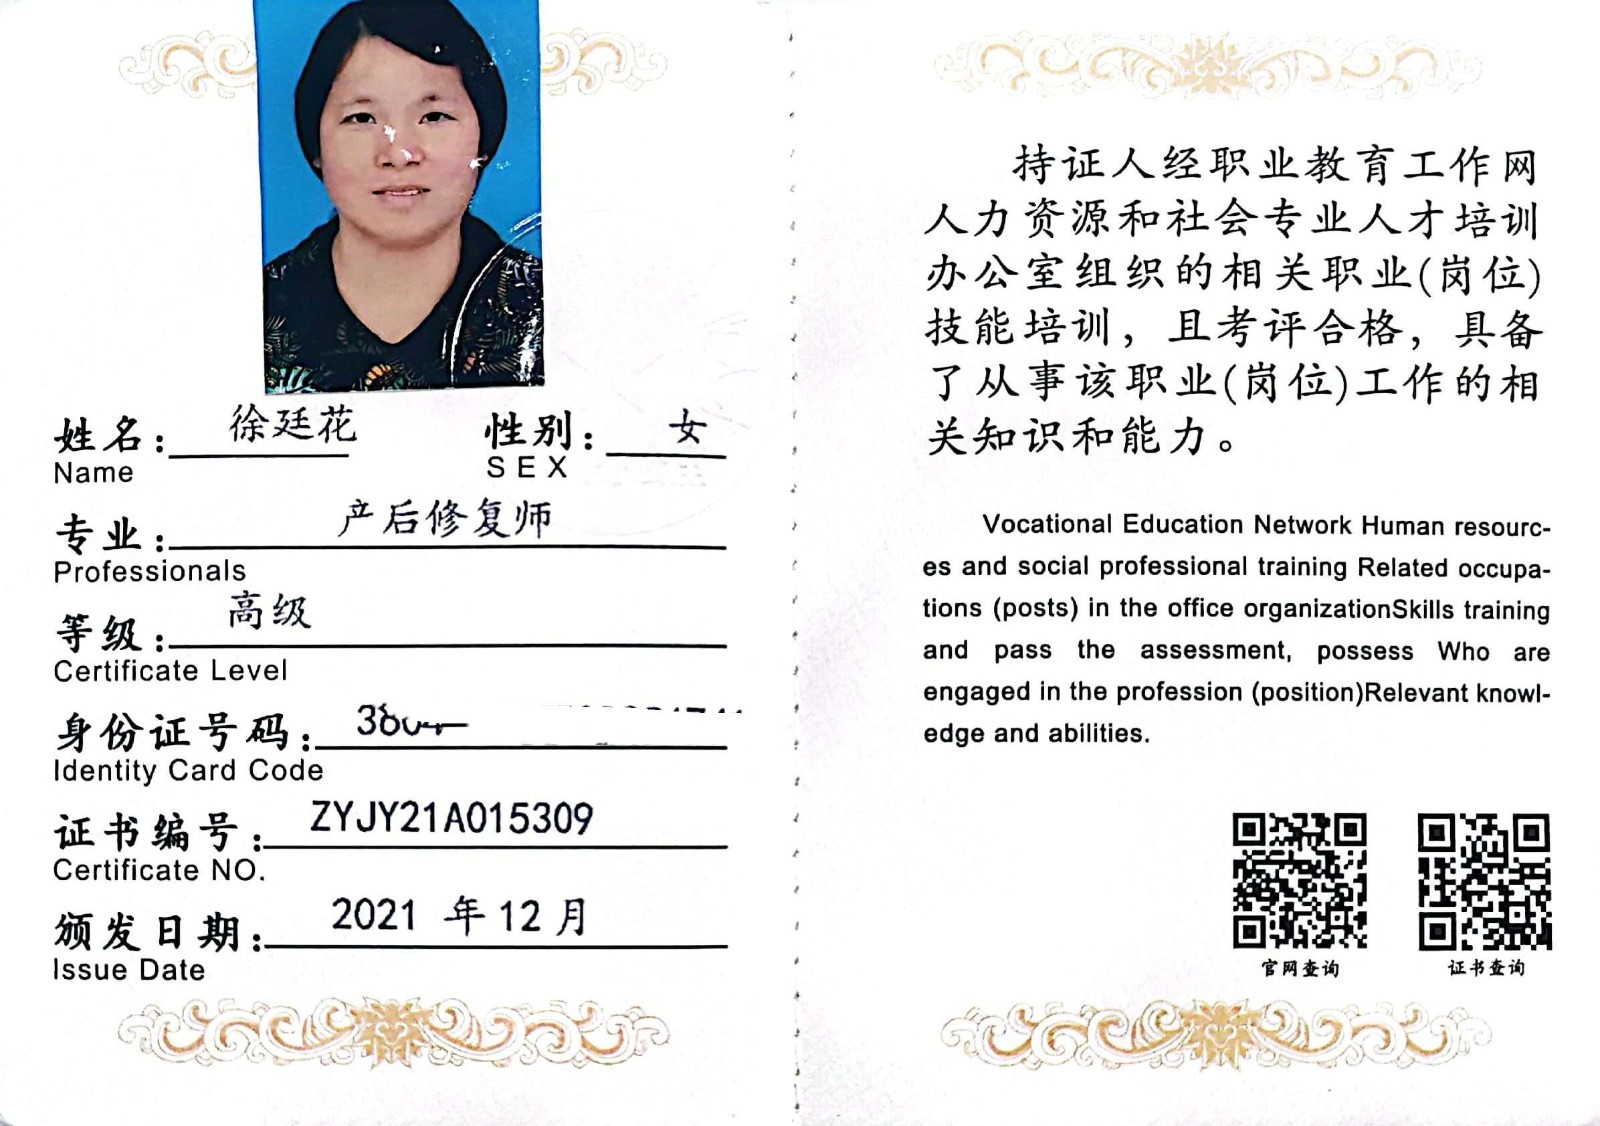 姓名：徐廷花 性别：女
Name SEX
专业：产后修复师
Professionals
等级：高级
Certificate Level
身份证号码：
Identity Card Code
证书编号：ZYJY21A015309
Certificate NO.
颁发日期：2021 年 12 月
Issue Date
持证人经职业教育工作网
人力资源和社会专业人才培训
办公室组织的相关职业(岗位)
技能培训，且考评合格，具备
了从事该职业(岗位)工作的相
关知识和能力。
Vocational Education Network Human resourc-
es and social professional training Related occupa-
tions (posts) in the office organizationSkills training
and pass the assessment, possess Who are
engaged in the profession (position)Relevant knowl-
edge and abilities.
官网查询 证书查询